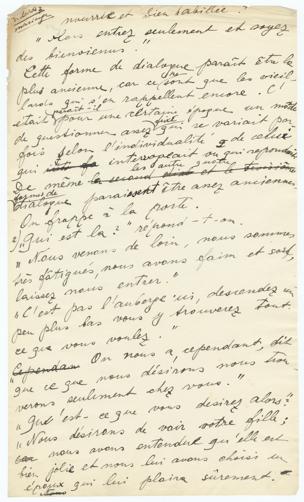 nourrie et bien habillée."
"Alors entrez seulement et soyez
des bienvenus."
Cette forme de dialogue paraît être la
plus ancienne, car ce sont que les vieil-
lards qui s'en rappellent encore. C'
était pour une certaine époque un mode
de questionner assez qui se variait par-
fois selon l'individualité de celui
qui interpellait ou qui répondait
De même le second et le troisième
dialogue paraissent être assez anciennes
On frappe à la porte.
2) "Qui est là?" répond-t-on.
"Nous venons de loin, nous sommes
très fatigués, nous avons faim et soif,
laissez nous entrer."
"C'est pas l'auberge ici, descendez un
peu plus bas vous y trouverez tout
ce que vous voulez."
"Cependant On nous a, cependant, dit
que ce que nous désirons nous trou-
verons seulement chez vous."
"Qu'est-ce que vous desirez alors?"
"Nous désirons de voir votre fille;
nous avons entendu qu'elle est
bien jolie et nous lui avons choisi un
époux qui lui plaira sûrement."